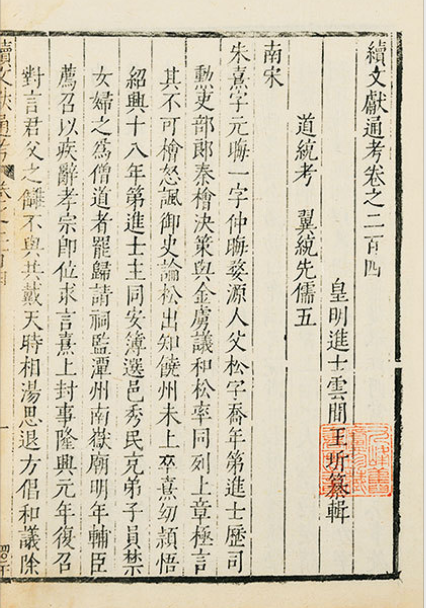 續文獻通考卷之二百四
皇明進士雲間王圻纂輯
道統考　翼統先儒五
南宋
朱熹字元晦一字仲晦婺源人父松字喬年第進士歷司
勳吏部郎秦檜決策與金虜議和松率同列上章極言
其不可檜怒諷御史論松出知饒州未上卒熹幼頴悟
紹興十八年第進士主同安簿選邑秀民充弟子員禁
女婦之為僧道者罷歸請祠監潭州南嶽廟明年輔臣
薦召以疾辭孝宗即位求言熹上封事隆興元年復召
對言君父之讎不與共戴天時相湯思退方倡和議除
續文獻通考　卷之二百四
一